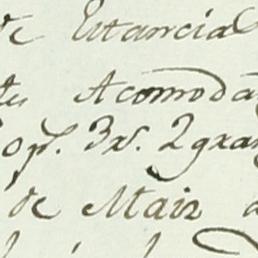 de Estancia
tes Acomoda
op.s 3x.s 2 gran
de Maiz a